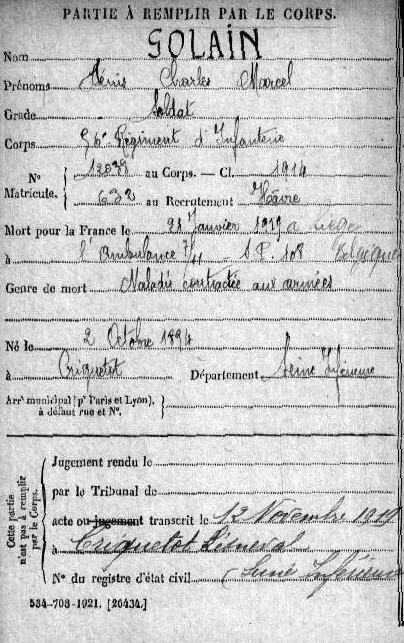 PARTIE À REMPLIR PAR LE CORPS.
Nom SOLAIN
Prénoms Denis Charles Marcel
Grade Soldat
Corps 36e Régiment d'Infanterie
No 12038 au Corps. — Cl. 1914
Matricule. 632 au Recrutement Hâvre
Mort pour la France le 28 Janvier 1919 a Liège
à l'Ambulance 7/11 S.P. 108 Belgique
Genre de mort Maladie contractée aux armées
Né le 2 Octobre 1894
à Criquetot Département Seine Inférieure
Arrt municipal (pr Paris et Lyon),
à défaut rue et No.
Cette partie
n'est pas à remplir
par le Corps.
Jugement rendu le
par le Tribunal de
acte ou jugement transcrit le 12 Novembre 1919
à Criquetot Lesneval
No du registre d'état civil (Seine Inférieure
534-708-1921. [26434.]